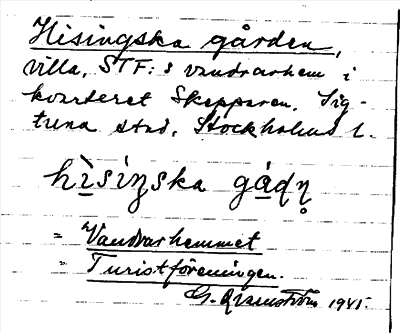 Hisingska gården,
villa, STF:s vandrarhem i
kvarteret Skepparen. Sig-
tuna stad, Stockholms l.
hìsíŋska gádṇ
= Vandrarhemmet
= Turistföreningen.
G. Qvarnström 1941.